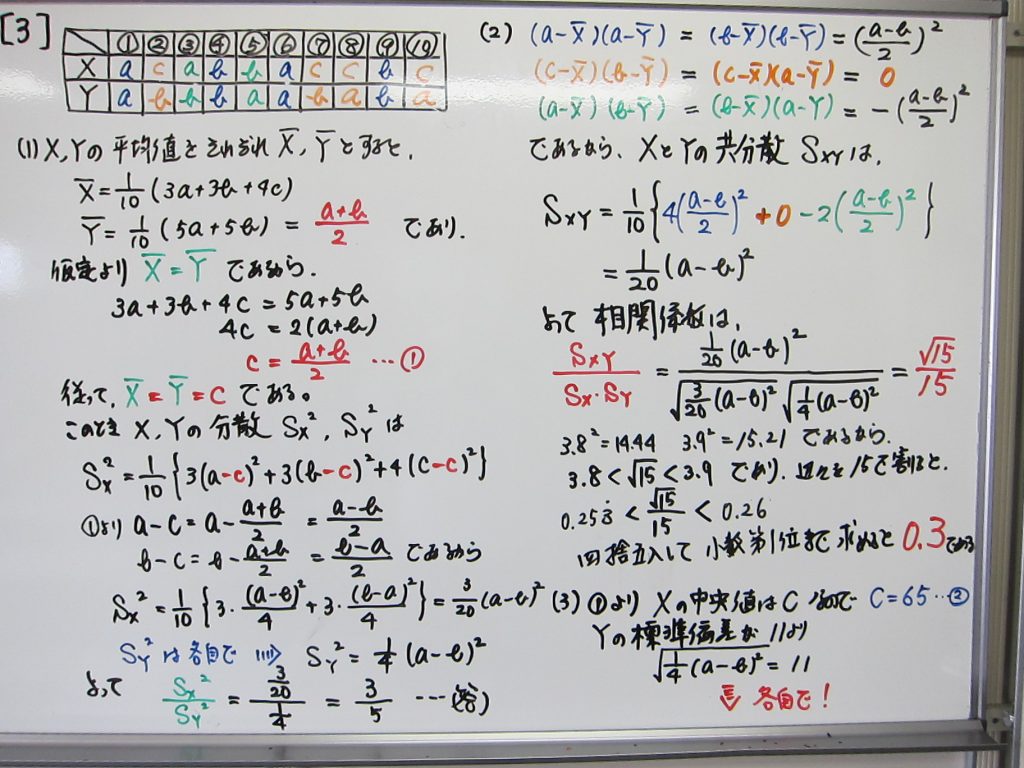 [3]
① ② ③ ④ ⑤ ⑥ ⑦ ⑧ ⑨ ⑩
X a c a b b a c c b c
Y a b b b a a b a b a
(1) X,Yの平均値をそれぞれ X̄, Ȳ とすると,
X̄ = 1/10 (3a+3b+4c)
Ȳ = 1/10 (5a+5b) = (a+b)/2 であり.
仮定より X̄ = Ȳ であるから.
3a+3b+4c = 5a+5b
4c = 2(a+b)
c = (a+b)/2 … ①
従って, X̄ = Ȳ = C である。
このとき X, Yの分散 Sx², SY² は
Sx² = 1/10 {3(a-c)²+3(b-c)²+4(c-c)²}
①より a-c = a - (a+b)/2 = (a-b)/2
b-c = b - (a+b)/2 = (b-a)/2 であるから
Sx² = 1/10 {3・(a-b)²/4 + 3・(b-a)²/4} = 3/20 (a-b)²
SY² は各自で ⇒ SY² = 1/4 (a-b)²
よって Sx²/SY² = (3/20)/(1/4) = 3/5 … (答)
(2) (a-X̄)(a-Ȳ) = (b-X̄)(b-Ȳ) = ((a-b)/2)²
(c-X̄)(b-Ȳ) = (c-X̄)(a-Ȳ) = 0
(a-X̄)(b-Ȳ) = (b-X̄)(a-Ȳ) = -((a-b)/2)²
であるから、XとYの共分散 SxYは,
SxY = 1/10 {4((a-b)/2)² + 0 - 2((a-b)/2)²}
= 1/20 (a-b)²
よって 相関係数は,
SxY/(Sx・SY) = (1/20 (a-b)²)/(√(3/20 (a-b)²) √(1/4 (a-b)²)) = √15/15
3.8² = 14.44 3.9² = 15.21 であるから.
3.8 < √15 < 3.9 であり. 辺々を15で割ると.
0.253̇ < √15/15 < 0.26
四捨五入して 小数第1位まで 求めると 0.3 である
(3) ①より Xの中央値はC なので C=65 … ②
Yの標準偏差が 11より
√(1/4 (a-b)²) = 11
⇓ 各自で!